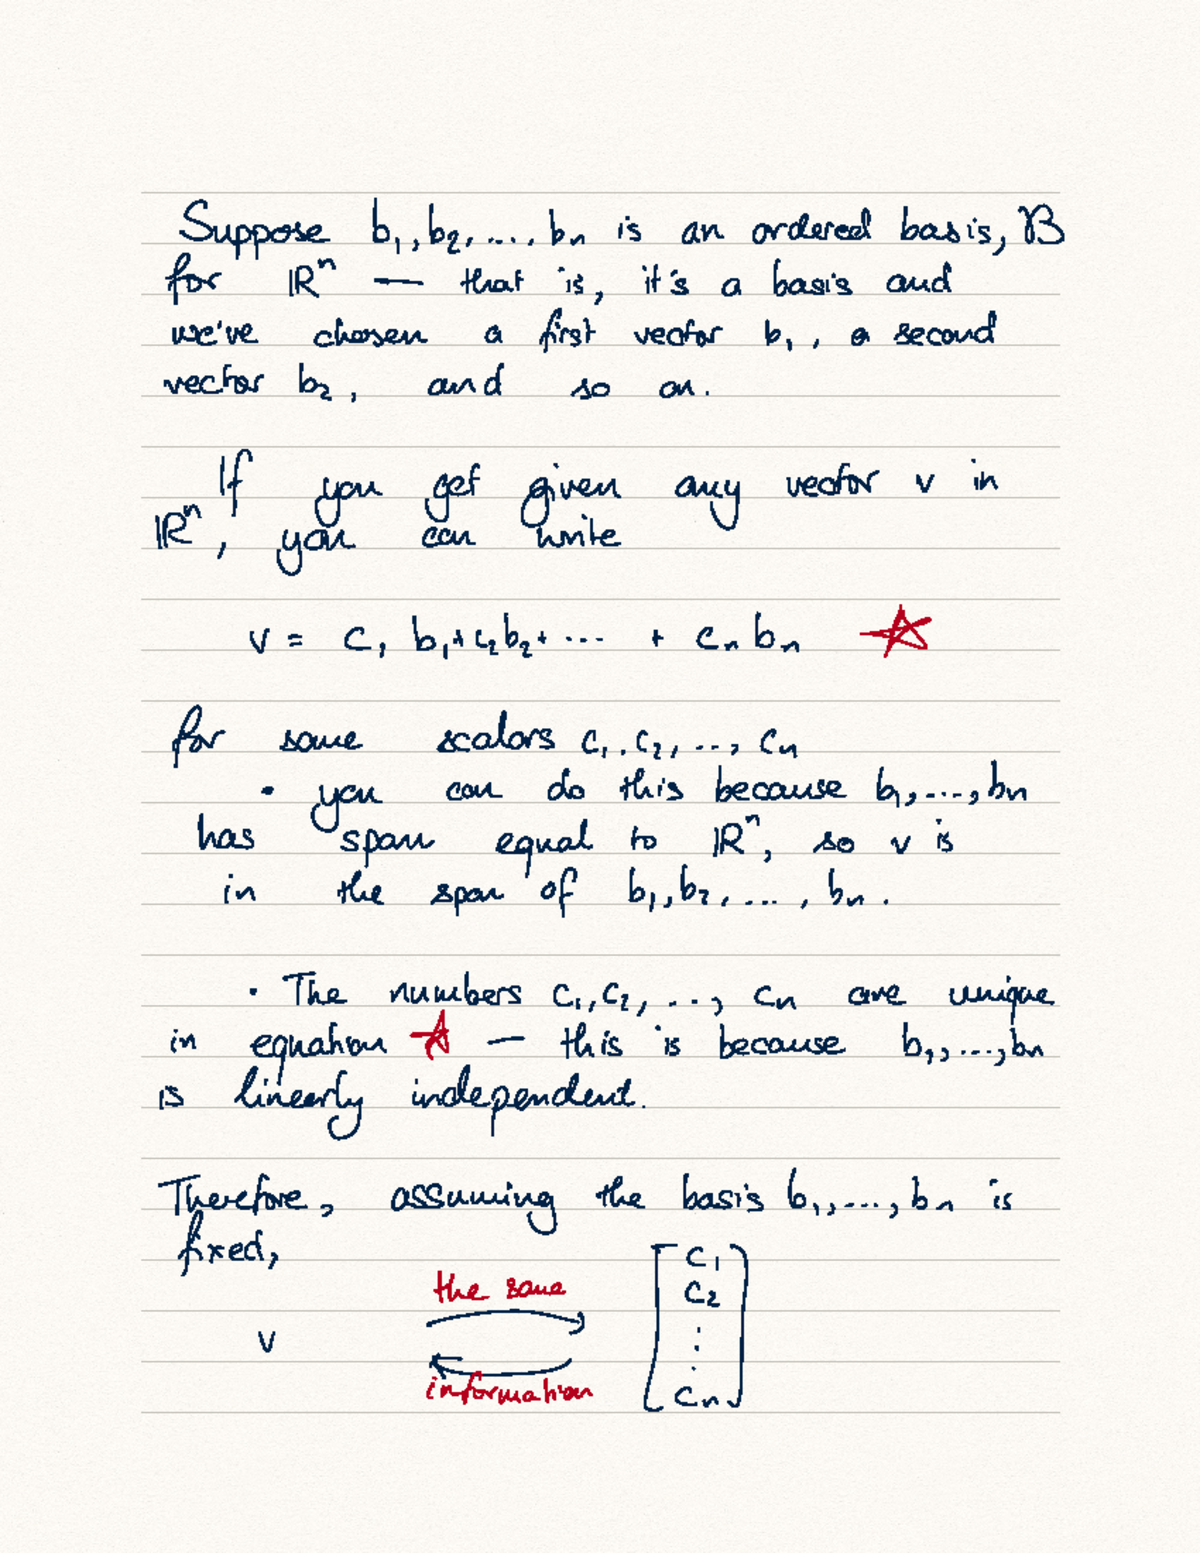 Suppose b₁, b₂, ..., bₙ is an ordered basis, ℬ
for ℝⁿ — that is, it's a basis and
we've chosen a first vector b₁, a second
vector b₂, and so on.
If you get given any vector v in
ℝⁿ, you can write
v = c₁ b₁ + c₂ b₂ + ... + cₙ bₙ ☆
for some scalars c₁, c₂, ..., cₙ
• you can do this because b₁, ..., bₙ
has span equal to ℝⁿ, so v is
in the span of b₁, b₂, ..., bₙ.
• The numbers c₁, c₂, ..., cₙ are unique
in equation ☆ — this is because b₁, ..., bₙ
is linearly independent.
Therefore, assuming the basis b₁, ..., bₙ is
fixed,
the same
v
information
[c₁
c₂
⋮
cₙ]